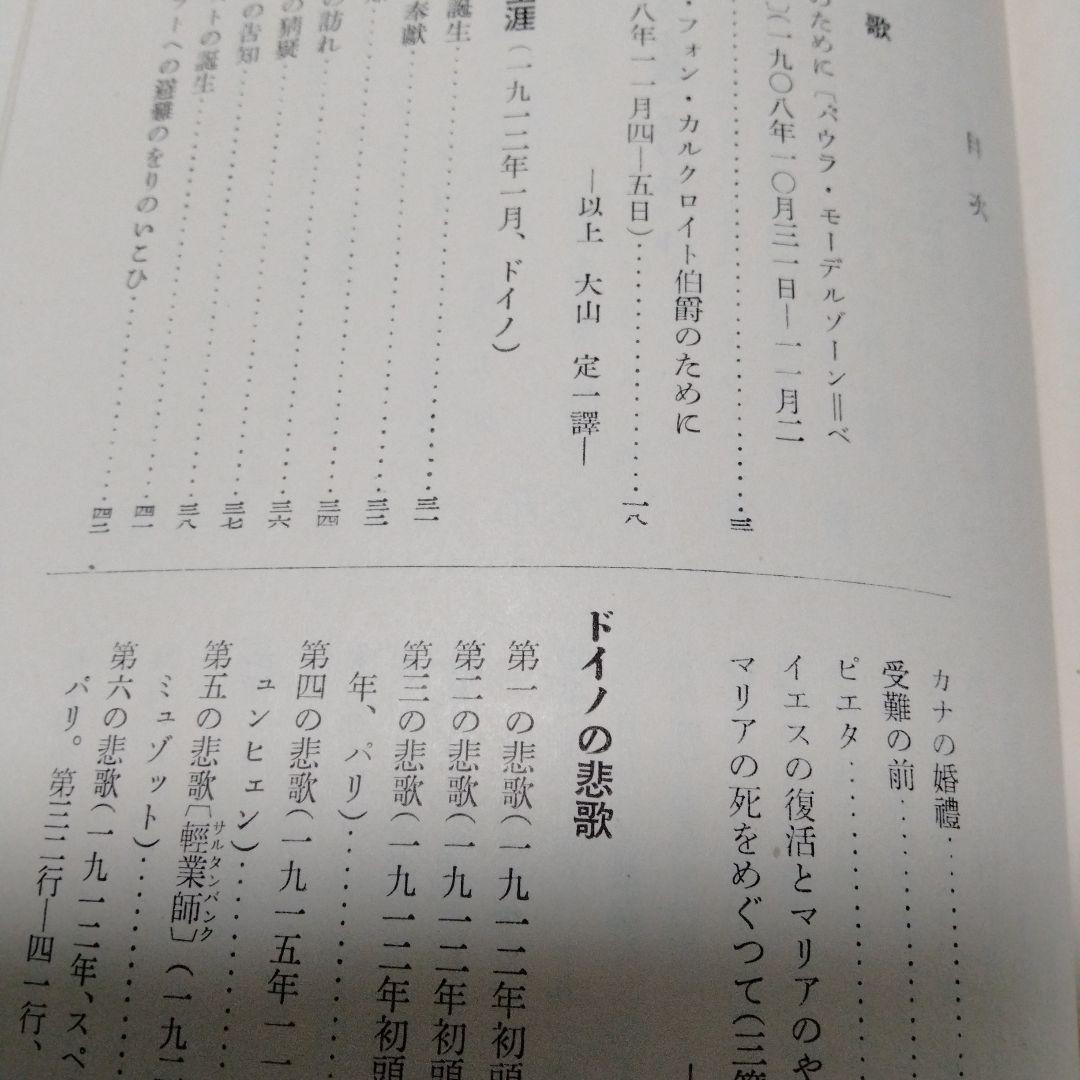 目次
歌
のために〔パウラ・モーデルゾーン＝ベ
(一九〇八年一〇月三一日—一一月二
‥‥‥‥‥‥三
・フォン・カルクロイト伯爵のために
八年一一月四—五日)‥‥‥‥‥‥一八
—以上 大山 定一譯—
涯(一九一二年一月、ドイノ)
誕生‥‥‥‥‥‥三一
奉獻‥‥‥‥‥‥三二
の訪れ‥‥‥‥‥‥三四
の病疑‥‥‥‥‥‥三六
の告知‥‥‥‥‥‥三七
トの誕生‥‥‥‥‥‥三八
への避難のをりのいこひ
四一
四二
カナの婚禮‥‥‥‥‥‥
受難の前‥‥‥‥‥‥
ピエタ‥‥‥‥‥‥
イエスの復活とマリアのや
マリアの死をめぐつて(三
ドイノの悲歌
第一の悲歌(一九一二年初頭
第二の悲歌(一九一二年初頭
第三の悲歌(一九一二年初頭
年、パリ)‥‥‥‥‥‥
第四の悲歌(一九一五年一一
ュンヒェン)‥‥‥‥‥‥
第五の悲歌〔輕業師サルタンバンク〕(一九
ミュゾット)‥‥‥‥‥‥
第六の悲歌(一九一二年、スペ
パリ。第三二行—四一行、